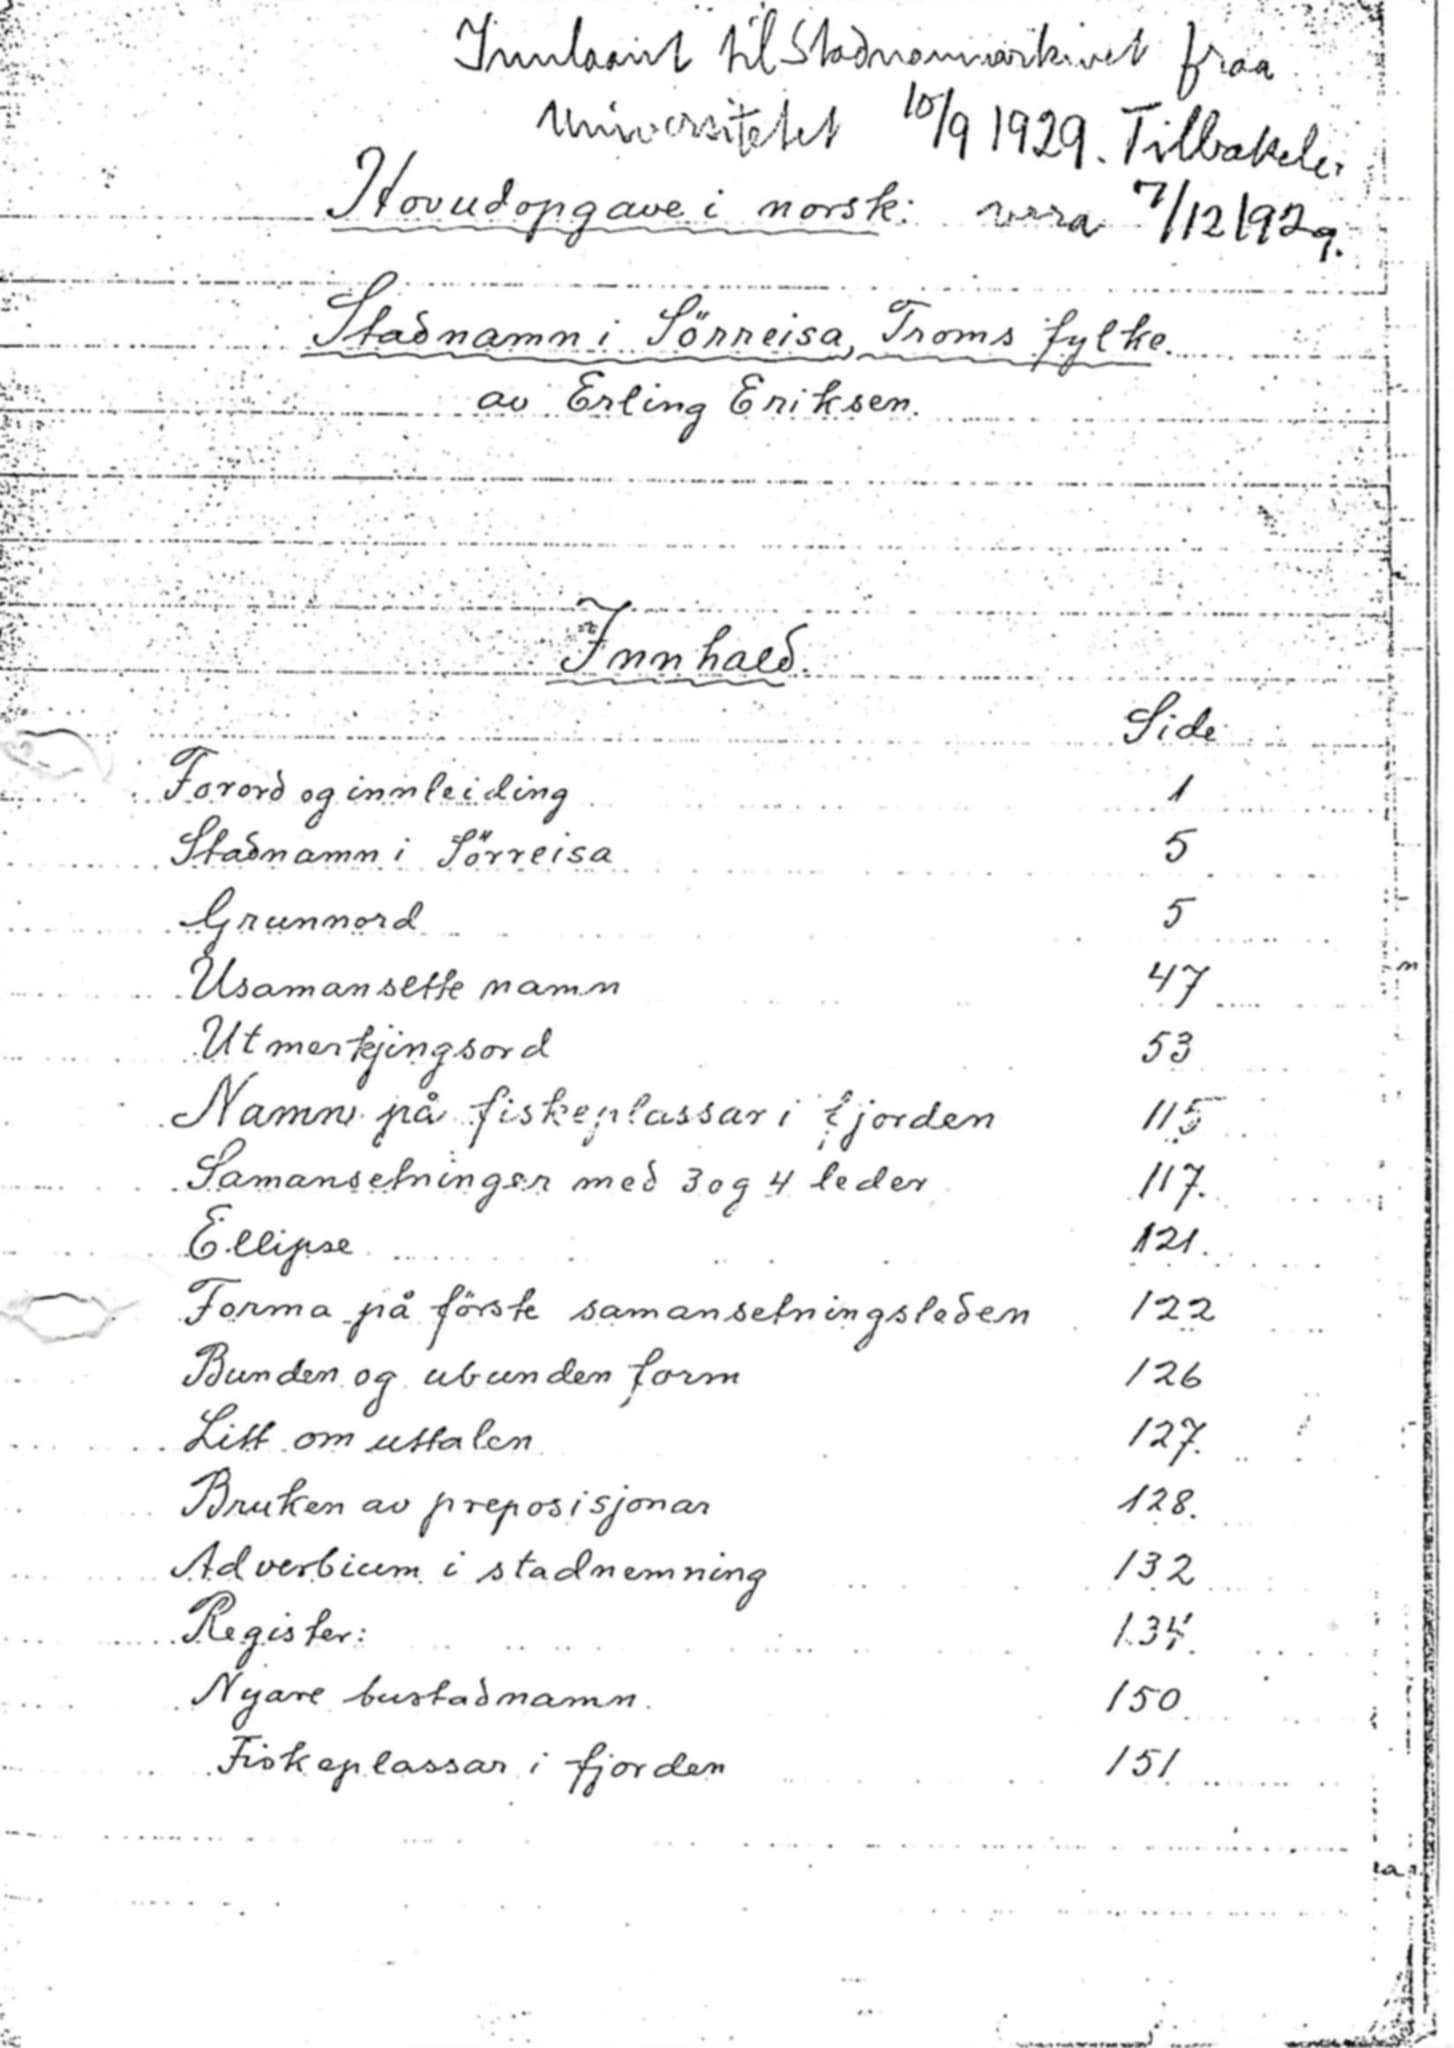 Innlaant til Stadnamnarkivet fraa
Universitetet 10/9 1929. Tilbakele-
Hovudopgave i norsk: vera 7/12 1929.
Stadnamn i Sörreisa, Troms fylke.
av Erling Eriksen.
Innhald.
Side
Forord og innleiding 1
Stadnamn i Sörreisa 5
Grunnord 5
Usamansette namn 47
Utmerkjingsord 53
Namn på fiskeplassar i fjorden 115
Samansetninger med 3 og 4 leder 117.
Ellipse 121.
Forma på förste samansetningsleden 122
Bunden og ubunden form 126
Litt om uttalen 127.
Bruken av preposisjonar 128.
Adverbium i stadnemning 132
Register: 134.
Nyare bustadnamn. 150
Fiskeplassar i fjorden 151